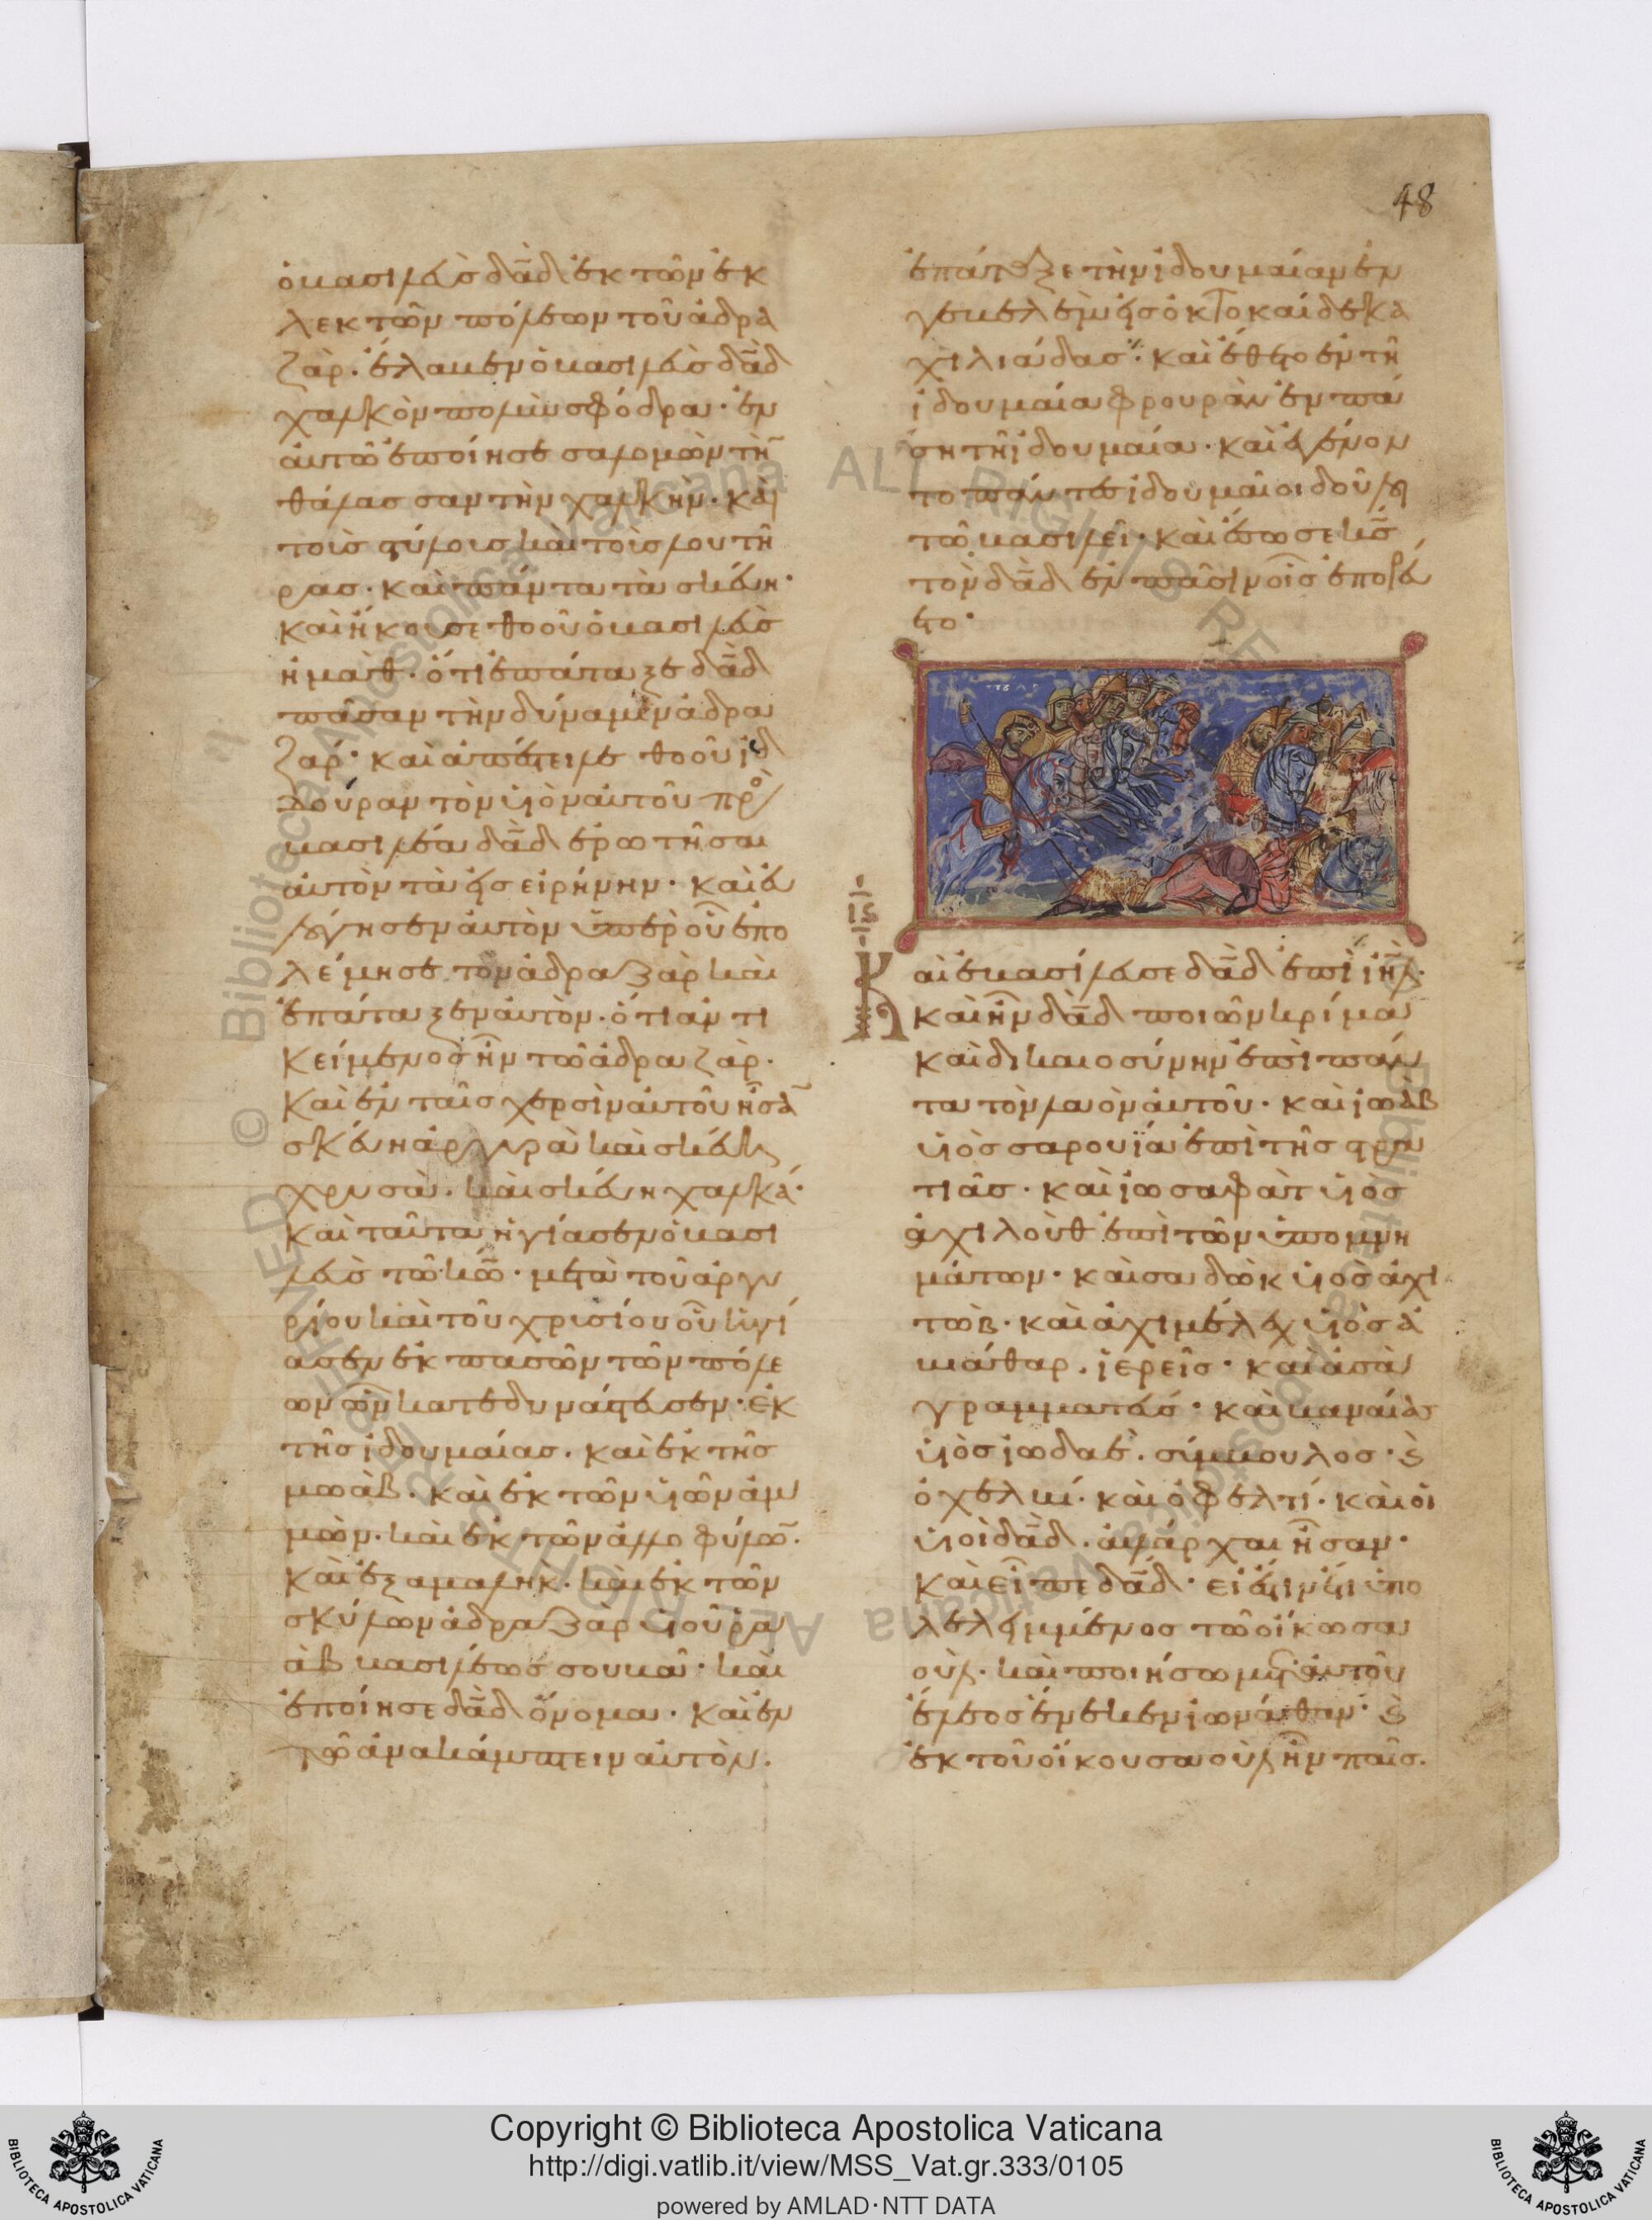 48
ὁ βασιλεὺς δᾱδ ἐκ τῶν ἐκ
λεκτῶν πόλεων τοῦ ἀδρα
ζάρ· ἔλαβεν ὁ βασιλεὺς δᾱδ
χαλκὸν πολὺν σφόδρα· ἐν
αὐτῶ ἐποίησε σαλομῶν τὴ̄
θάλασσαν τὴν χαλκῆν· καὶ
τοὺς στύλους καὶ τοὺς λουτῆ
ρας· καὶ πάντα τὰ σκεύη·
καὶ ἤκουσε θοοῦ ὁ βασιλεὺς
ἡμάθ· ὅτι ἐπάταξε δᾱδ
πᾶσαν τὴν δύναμιν ἀδρα
ζάρ· καὶ ἀπέστειλε θοοῦ ἰδ
δουρὰμ τὸν υἱὸν αὐτοῦ πρὸ
βασιλέα δᾱδ ἐρωτῆσαι
αὐτὸν τὰ εἰς εἰρήνην· καὶ εὐ
λογῆσεν αὐτὸν ὑπὲρ οὗ ἐπο
λέμησε τὸν ἀδραζὰρ καὶ
ἐπάταξεν αὐτόν· ὅτι ἀντι
κείμενος ἦν τῶ ἀδραζάρ·
καὶ ἐν ταῖς χερσὶν αὐτοῦ ἦσᾱ
σκεύη ἀργυρᾶ καὶ σκεύη
χρυσᾶ· καὶ σκεύη χαλκᾶ·
καὶ ταῦτα ἡγίασεν ὁ βασι
λεὺς τῶ κῶ̄· μετὰ τοῦ ἀργυ
ρίου καὶ τοῦ χρυσίου οὗ ἡγί
ασεν ἐκ πασῶν τῶν πόλε
ων ὧν κατεδυνάστευσεν· ἐκ
τῆς ἰδουμαίας· καὶ ἐκ τῆς
μωάβ· καὶ ἐκ τῶν υἱῶν ἀμ
μών· καὶ ἐκ τῶν ἀλλοφύλω̄·
καὶ ἐξ ἀμαλήκ· καὶ ἐκ τῶν
σκύλων ἀδραζὰρ υἱοῦ ῥα
ὰβ βασιλέως σουβᾶ· καὶ
ἐποίησε δᾱδ ὄνομα· καὶ ἐν
τῶ ἀνακάμπτειν αὐτὸν·
ἐπάταξε τὴν ἰδουμαίαν ἐν
γεβελὲμ εἰς ὀκτοκαίδεκα
χιλιάδας· καὶ ἔθετο ἐν τῆ
ἰδουμαία φρουρὰν ἐν πά
ση τῆ ἰδουμαία· καὶ ἐγένον
το πάντες ἰδουμαῖοι δοῦλοι
τῶ βασιλεῖ· καὶ ἔσωσε κς̄
τὸν δᾱδ ἐν πᾶσιν οἷς ἐπορεύ
ετο·
ις
Καὶ ἐβασίλευσε δᾱδ ἐπὶ ιη̄λ·
καὶ ἦν δᾱδ ποιῶν κρίμα
καὶ δικαιοσύνην ἐπὶ πάν
τα τὸν λαὸν αὐτοῦ· καὶ ἰωὰβ
υἱὸς σαρουΐα ἐπὶ τῆς στρα
τιᾶς· καὶ ἰωσαφὰτ υἱὸς
ἀχιλοὺθ ἐπὶ τῶν ὑπομνη
μάτων· καὶ σαδὼκ υἱὸς ἀχι
τώβ· καὶ ἀχιμέλεχ υἱὸς ἀ
βιάθαρ· ἱερεῖς· καὶ ἀσὰ
γραμματεύς· καὶ βαναίας
υἱὸς ἰωδαέ· σύμβουλος· ϗ
ὁ χελβί· καὶ ὁ φελτί· καὶ οἱ
υἱοὶ δᾱδ· αὐλάρχαι ἦσαν·
καὶ εἶπε δᾱδ· εἰ ἔστιν ἔτι ὑπο
λελειμμένος τῶ οἴκω σα
ούλ· καὶ ποιήσω μετ' αὐτοῦ
ἔλεος ἕνεκεν ἰωνάθαν· ϗ
ἐκ τοῦ οἴκου σαοὺλ ἦν παῖς·
Copyright © Biblioteca Apostolica Vaticana
http://digi.vatlib.it/view/MSS_Vat.gr.333/0105
powered by AMLAD·NTT DATA
BIBLIOTECA APOSTOLICA VATICANA
BIBLIOTECA APOSTOLICA VATICANA